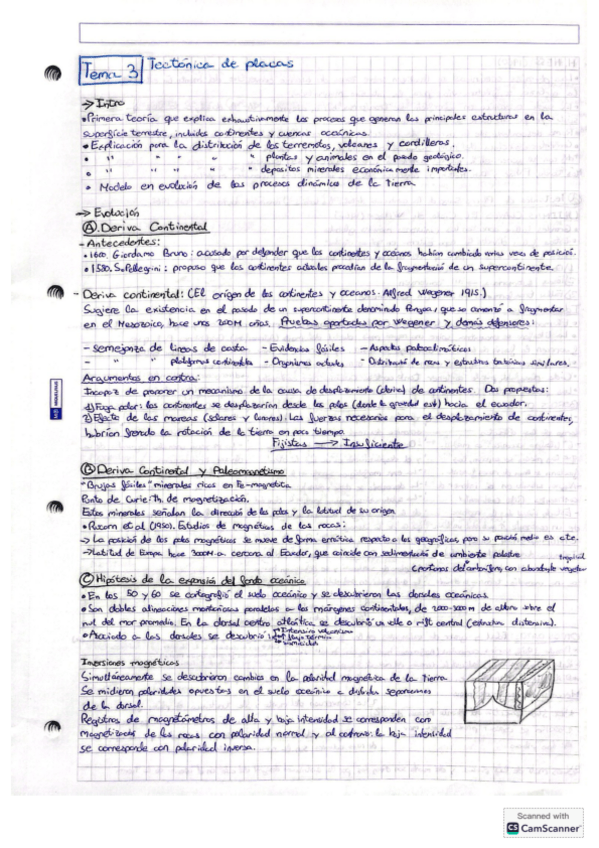 Tema 3
Tectónica de placas
→ Intro
• Primera teoría que explica exhaustivamente los procesos que generan las principales estructuras en la
superficie terrestre, incluidos continentes y cuencas oceánicas.
• Explicación para la distribución de los terremotos, volcanes y cordilleras.
• " " " " " plantas y animales en el pasado geológico.
• " " " " " depósitos minerales económicamente importantes.
• Modelo en evolución de los procesos dinámicos de la Tierra
→ Evolución
Ⓐ. Deriva Continental
- Antecedentes:
• 1600. Giordano Bruno: acusado por defender que los continentes y océanos habían cambiado varias veces de posición.
Pellegrini: propuso que los continentes actuales procedían de la fragmentación de un supercontinente.
- Deriva continental: (El origen de los continentes y océanos. Alfred Wegener 1915.)
Sugiere la existencia en el pasado de un supercontinente denominado Pangea, que se comenzó a fragmentar
en el Mesozoico, hace unos 200M años. Pruebas aportadas por Wegener y demás defensores:
- Semejanza de líneas de costa - Evidencias fósiles - Aspectos paleoclimáticos
- " " plataformas continentales - Organismos actuales - Distribución de rocas y estructuras tectónicas similares.
Argumentos en contra:
Incapaz de proponer un mecanismo de la causa de desplazamiento (deriva) de continentes. Dos propuestas:
1) Fuga polar: los continentes se desplazarían desde los polos (donde la gravedad está) hacia el ecuador.
2) Efecto de las mareas (solares y lunares). Las fuerzas necesarias para el desplazamiento de continentes,
habrían frenado la rotación de la tierra en poco tiempo
Fijistas → Insuficiente
Ⓑ Deriva Continental y Paleomagnetismo
"Brújas fósiles" minerales ricos en Fe-magnetita
Punto de Curie: th. de magnetización.
Estos minerales señalan la dirección de los polos y la latitud de su origen
• et al (1950). Estudios de magnética de las rocas:
→ La posición de los polos magnéticos se mueve de forma errática respecto a los geográficos, pero su posición media es cte.
→ Latitud de Europa hace 300M a. cercana al Ecuador, que coincide con sedimentación de ambiente palustre
tropical
del carbonífero, con abundante vegetación
Ⓒ Hipótesis de la expansión del fondo oceánico
• En los 50 y 60 se cartografió el suelo oceánico y se descubrieron las dorsales oceánicas.
• Son dobles alineaciones montañosas paralelas a los márgenes continentales, de 2000-3000m de altura sobre el
nivel del mar promedio. En la dorsal centro atlántica se descubrió un valle o rift central (estructura distensiva).
• Asociado a las dorsales se descubrió: Intensivo vulcanismo
flujo térmico
sismicidad
Inversiones magnéticas
Simultáneamente se descubrieron cambios en la polaridad magnética de la Tierra.
Se midieron polaridades opuestas en el suelo oceánico a distintas separaciones
de la dorsal.
Registros de magnetómetros de alta y baja intensidad se corresponden con
magnetizados de las rocas con polaridad normal y al contrario: la baja intensidad
se corresponde con polaridad inversa.
Scanned with
CS CamScanner